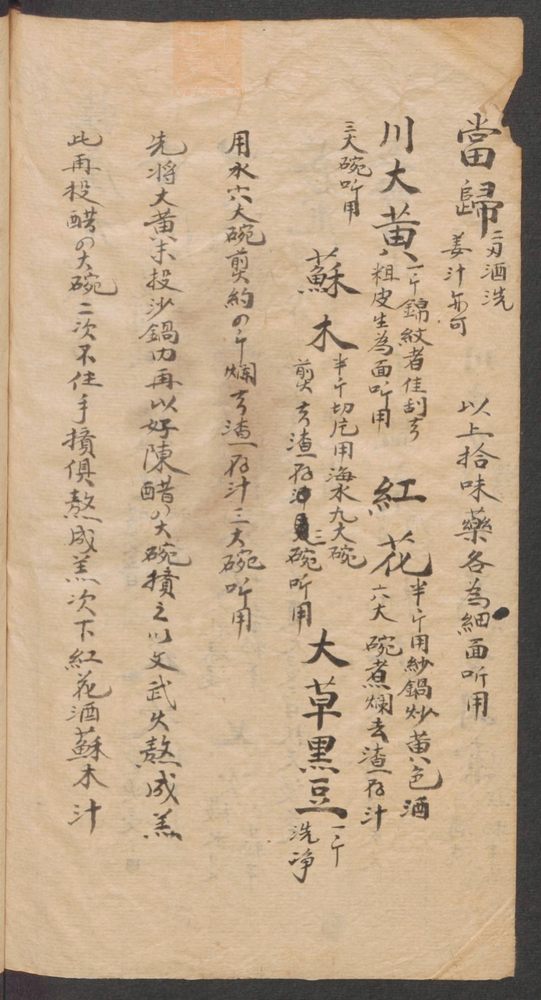 當歸 二刃酒洗
姜汁亦可
以上拾味藥各為細面听用
川大黃 一斤錦紋者佳刮去
粗皮生為面听用
紅花 半斤用紗鍋炒黃色酒
六大碗煮爛去渣存汁
三大碗听用
蘇木 半斤切片用海水九大碗
煎去渣存汁三碗听用
大草黑豆 一斤
洗淨
用水六大碗煎約の斤爛去渣存汁三大碗听用
先將大黃末投沙鍋内再以好陳醋の大碗擯之以文武火熬成羔
此再投醋の大碗二次不住手擯俱熬成羔次下紅花酒蘇木汁